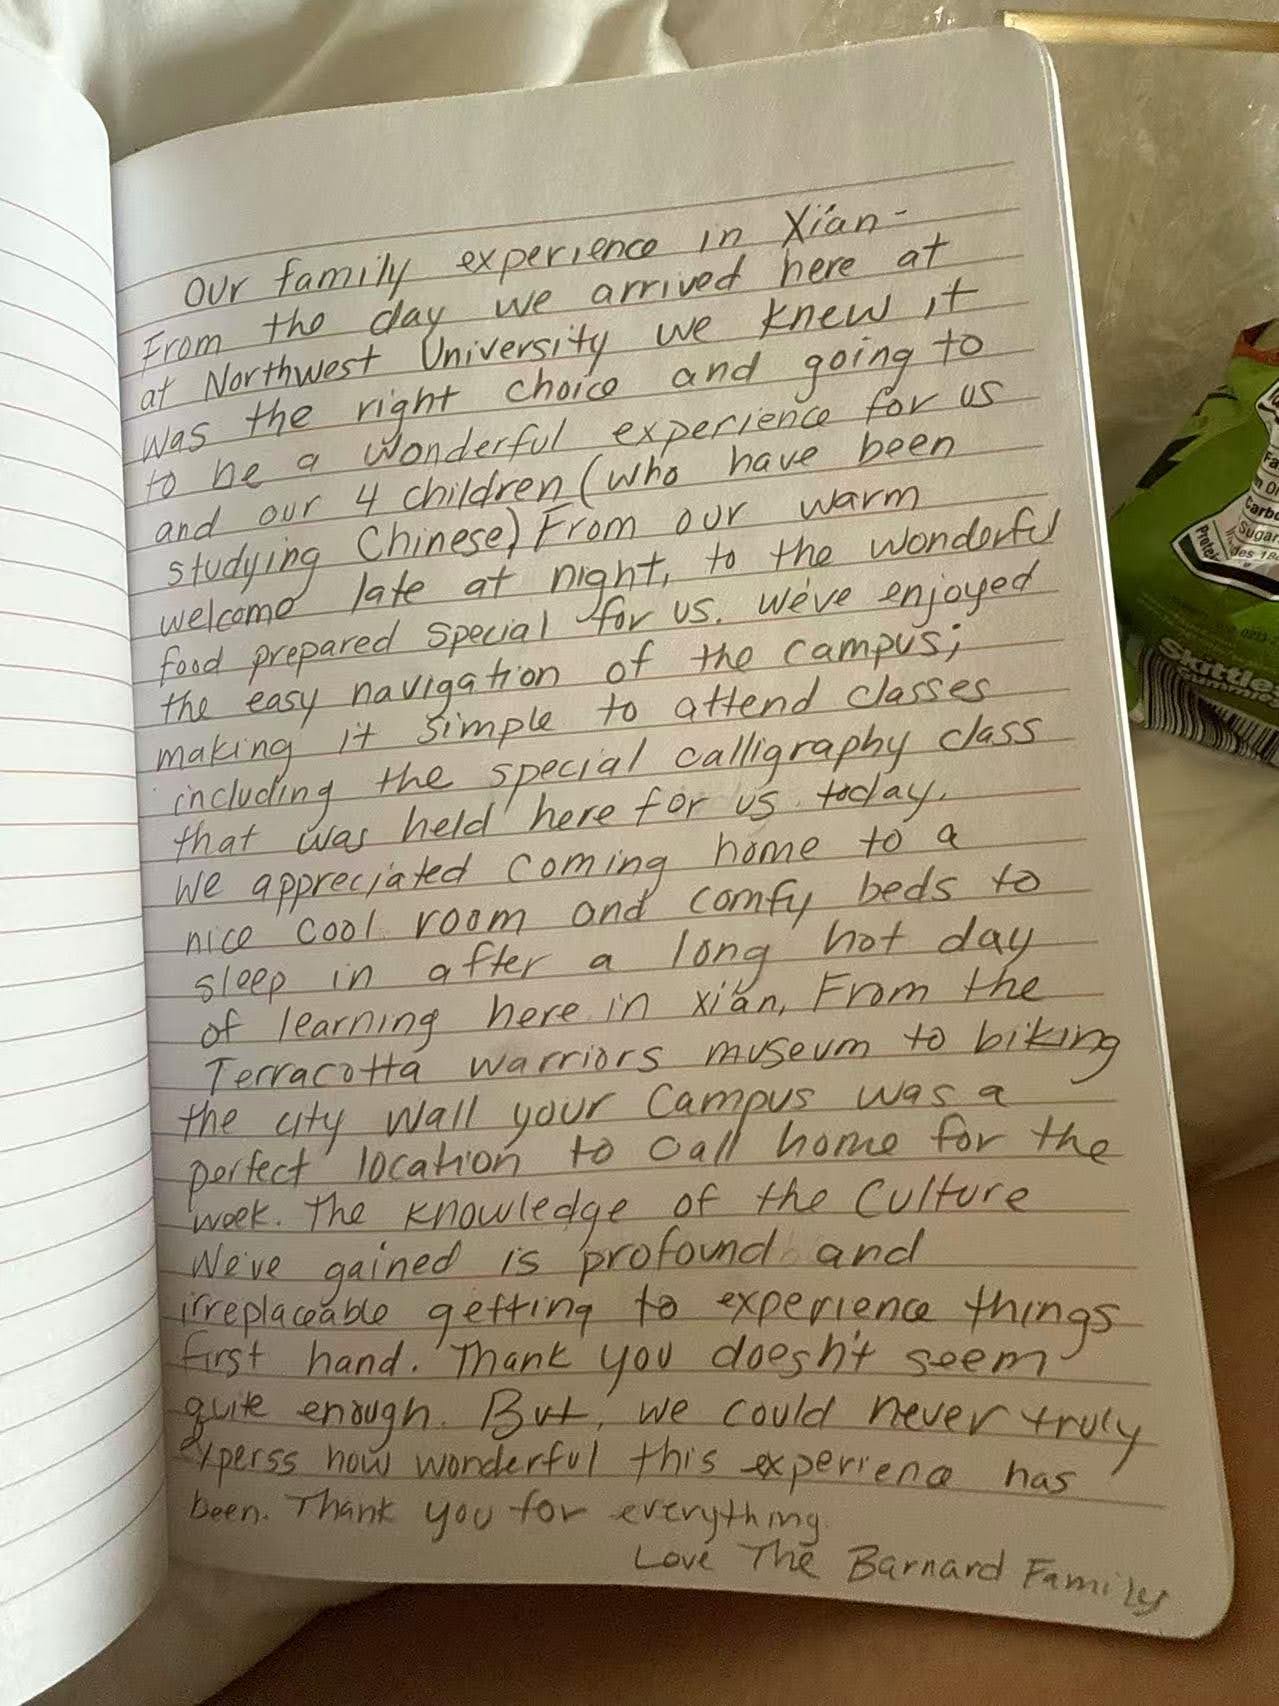 Our family experience in Xían-
From the day we arrived here at
at Northwest University we knew it
was the right choice and going to
to be a wonderful experience for us
and our 4 children (who have been
studying Chinese) From our warm
welcome late at night, to the wonderful
food prepared special for us. We've enjoyed
the easy navigation of the campus;
making it simple to attend classes
including the special calligraphy class
that was held here for us today.
We appreciated coming home to a
nice cool room and comfy beds to
sleep in after a long hot day
of learning here in xían, From the
Terracotta warriors museum to biking
the city wall your Campus was a
perfect location to call home for the
week. The knowledge of the Culture
We've gained is profound and
irreplaceable getting to experience things
first hand. Thank you doesn't seem
quite enough. But, we could never truly
experss how wonderful this experience has
been. Thank you for everything
Love The Barnard Family
Skittles
Gummies
Sugar
Carbo
Protei